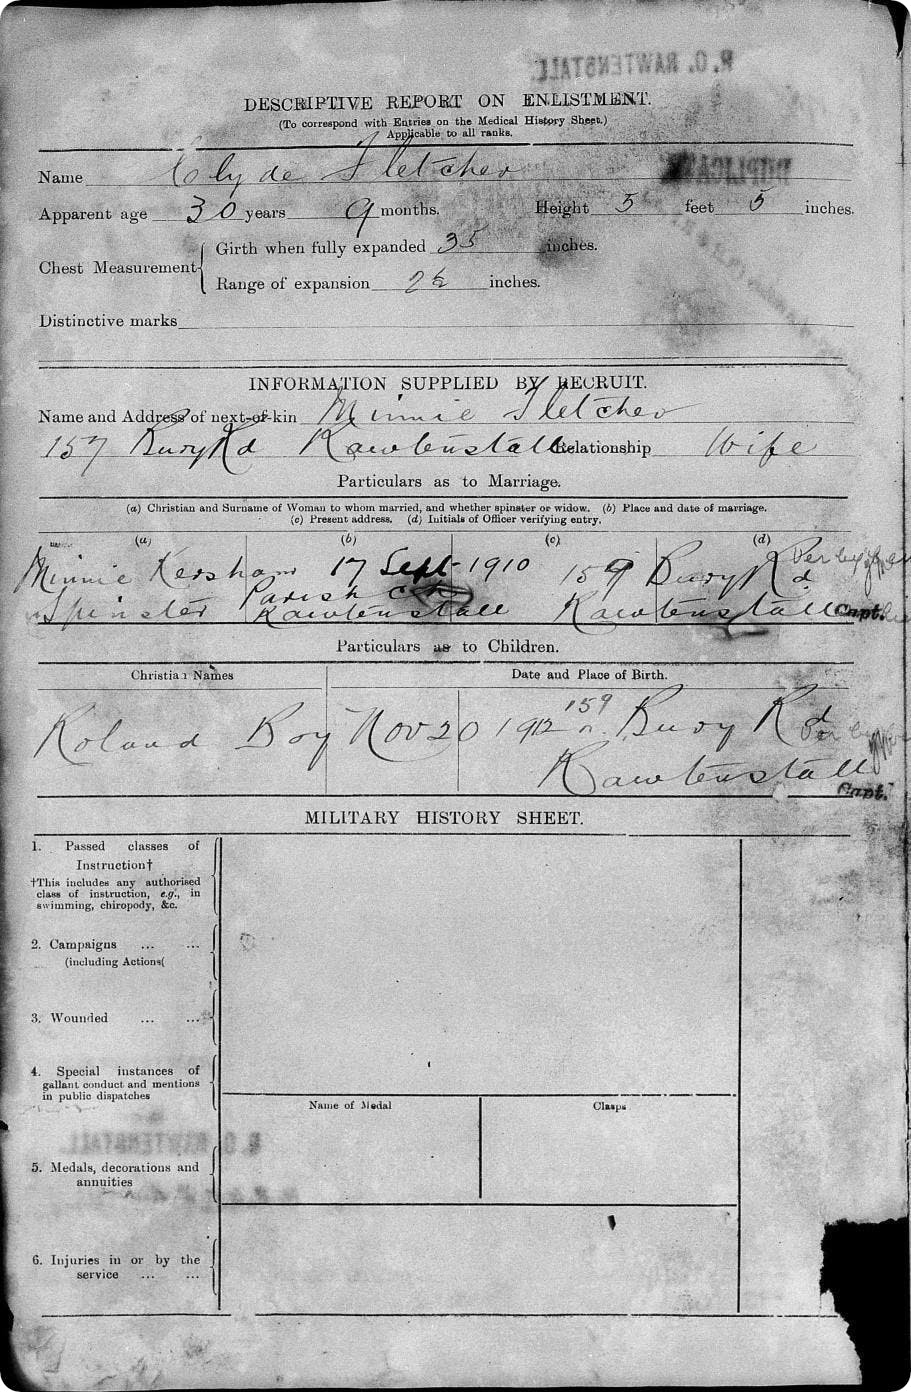 R. O. RAWTENSTALL
DESCRIPTIVE REPORT ON ENLISTMENT.
(To correspond with Entries on the Medical History Sheet.)
Applicable to all ranks.
DUPLICATE
Name Clyde Fletcher
Apparent age 30 years 9 months. Height 5 feet 5 inches.
Girth when fully expanded 35 inches.
Chest Measurement
Range of expansion 2½ inches.
Distinctive marks
INFORMATION SUPPLIED BY RECRUIT.
Name and Address of next-of-kin Minnie Fletcher
157 Bury Rd Rawtenstall Relationship Wife
Particulars as to Marriage.
(a) Christian and Surname of Woman to whom married, and whether spinster or widow. (b) Place and date of marriage.
(c) Present address. (d) Initials of Officer verifying entry.
(a) (b) (c) (d)
Minnie Kershaw 17 Sept 1910 159 Bury Rd
Spinster Parish Ch Rawtenstall Rawtenstall Capt.
Particulars as to Children.
Christian Names Date and Place of Birth.
Roland Boy Nov 20 1912 159 Bury Rd
Rawtenstall
Capt.
MILITARY HISTORY SHEET.
1. Passed classes of
Instruction†
†This includes any authorised
class of instruction, e.g., in
swimming, chiropody, &c.
2. Campaigns ... ...
(including Actions(
3. Wounded ... ...
4. Special instances of
gallant conduct and mentions
in public dispatches
Name of Medal Clasps
R. O. RAWTENSTALL
5. Medals, decorations and
annuities
6. Injuries in or by the
service ... ...